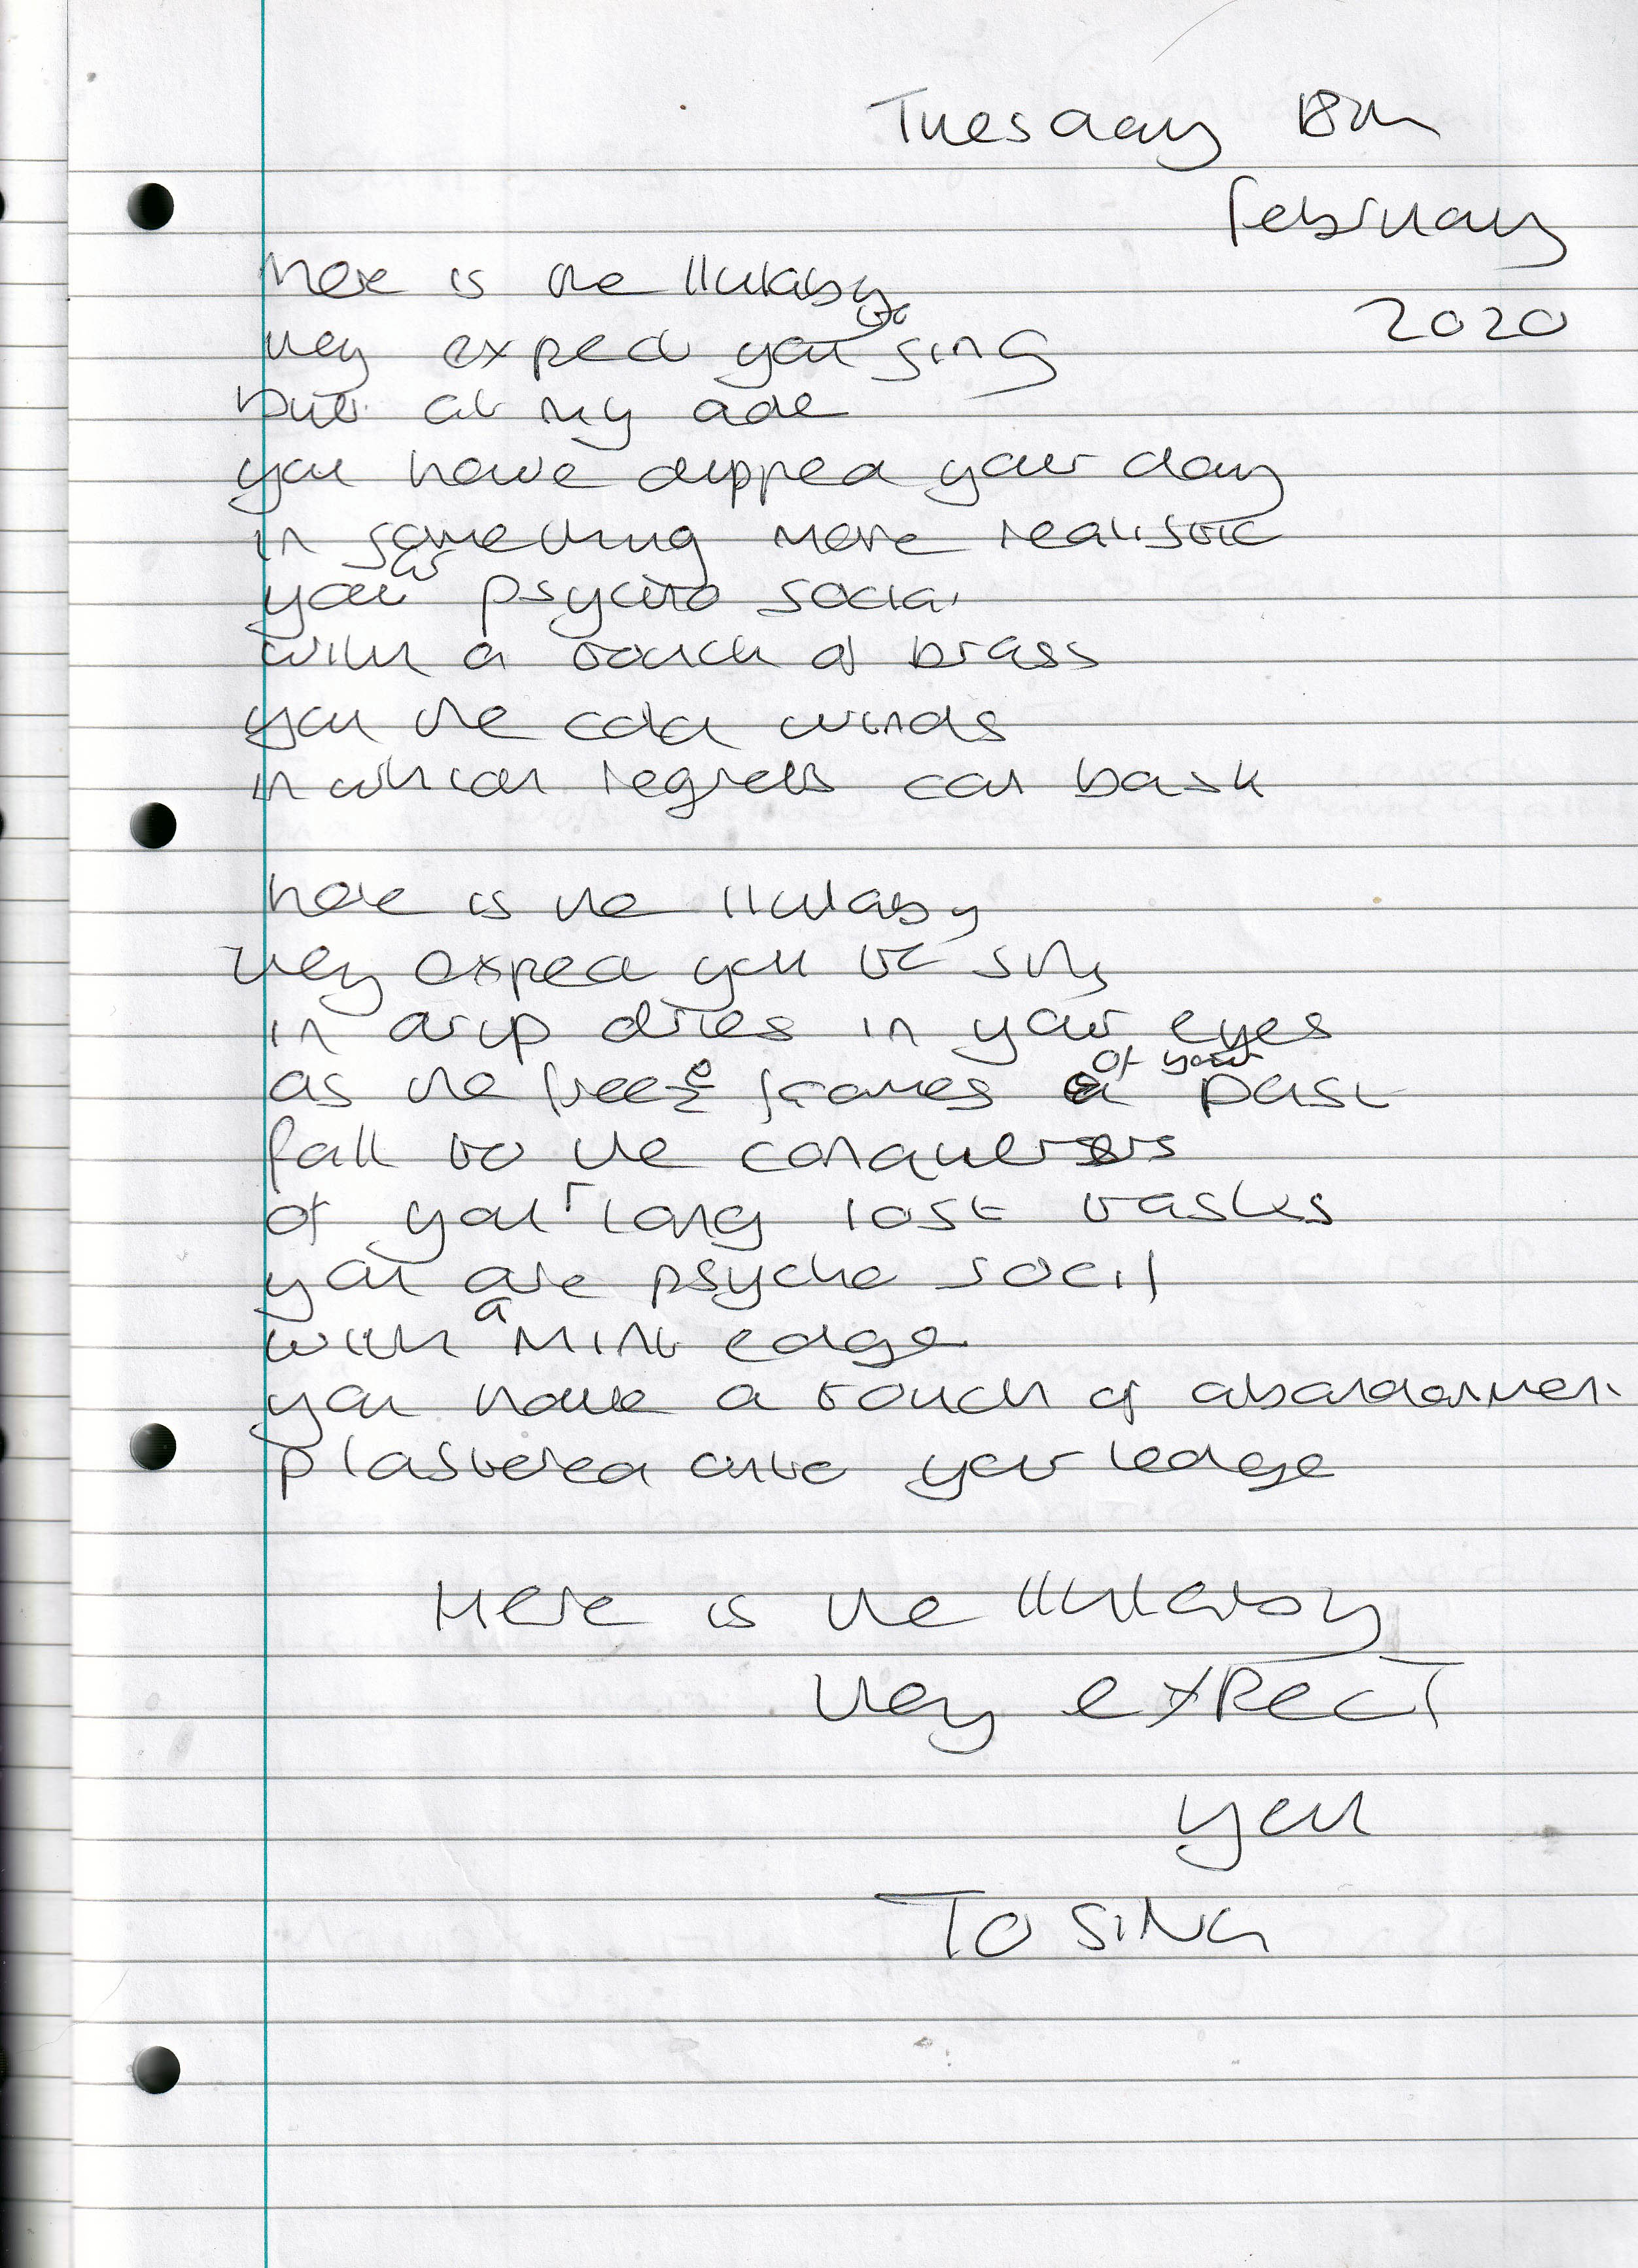 Tuesday 18th
February
2020
here is the llulaby
they expect you to sing
but at my
you have dipped your day
in something more realistic
your psycho social
with a touch of brass
you the cold winds
in which regrets can bask
here is the llulaby
they expect you to sing
in drip dries in your eyes
as the freeze frames of your past
fall to the conquerers
of your long lost tasks
you are psycho socil
with a mint edge
you have a touch of abandonment
plastered onto your ledge
Here is the llulaby
they expect
you
TO SING